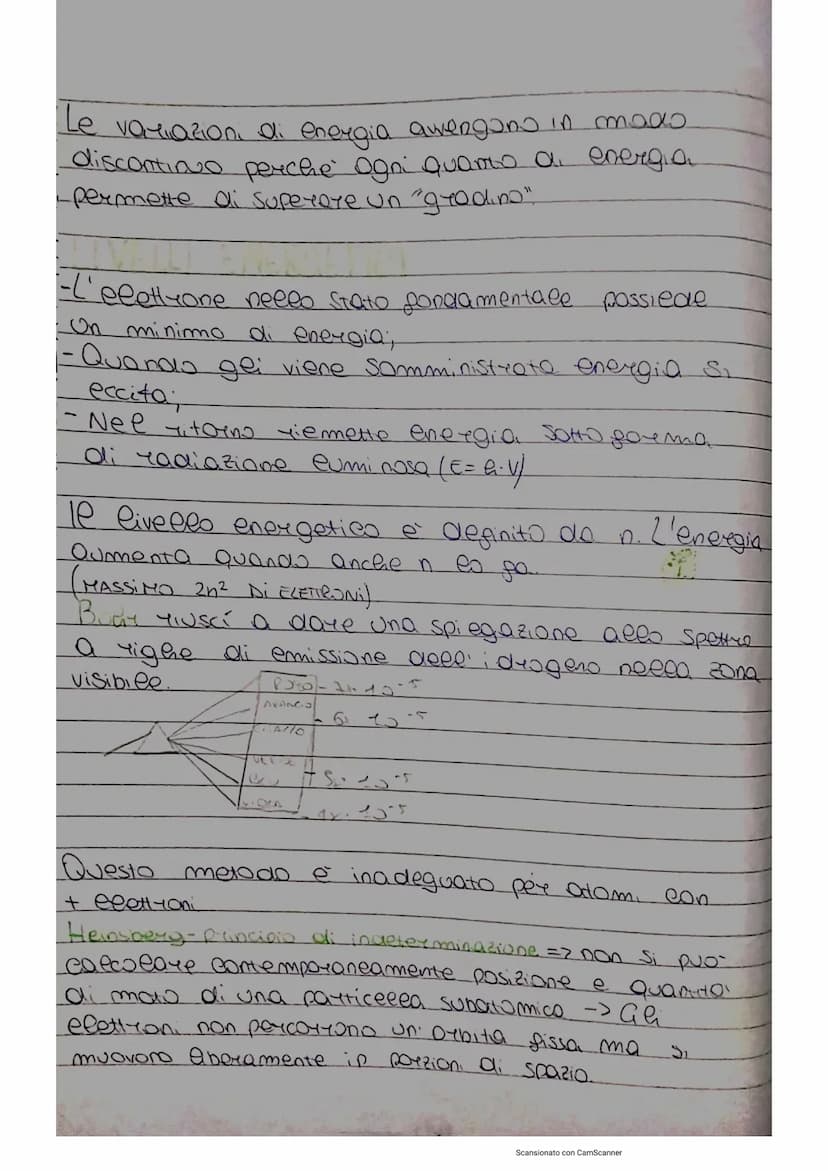 Le variazioni di energia avvengono in modo
discontinuo perché ogni quanto di energia
permette di superare un "gradino".
LIVELLI ENERGETICI
-L'elettrone nello stato fondamentale possiede
un minimo di energia;
- Quando gli viene somministrata energia si
eccita;
- Nel ritorno riemette energia sotto forma
di radiazione luminosa (E= h·V)
Il livello energetico è definito da n. L'energia
aumenta quando anche n lo fa.
(MASSIMO 2n² Di ELETTRONI)
riuscì a dare una spiegazione allo spettro
a righe di emissione dell'idrogeno nella zona
visibile.
10⁻⁵
ARANCIO
10⁻⁵
GIALLO
VERDE
BLU 5· 10⁻⁵
VIOLA
4· 10⁻⁵
Questo metodo è inadeguato per atomi con
+ elettroni
Heinsberg-principio di indeterminazione => non si può
calcolare contemporaneamente posizione e quantità
di moto di una particella subatomica -> Gli
elettroni non percorrono un'orbita fissa ma si
muovono liberamente in porzioni di spazio.
Scansionato con CamScanner